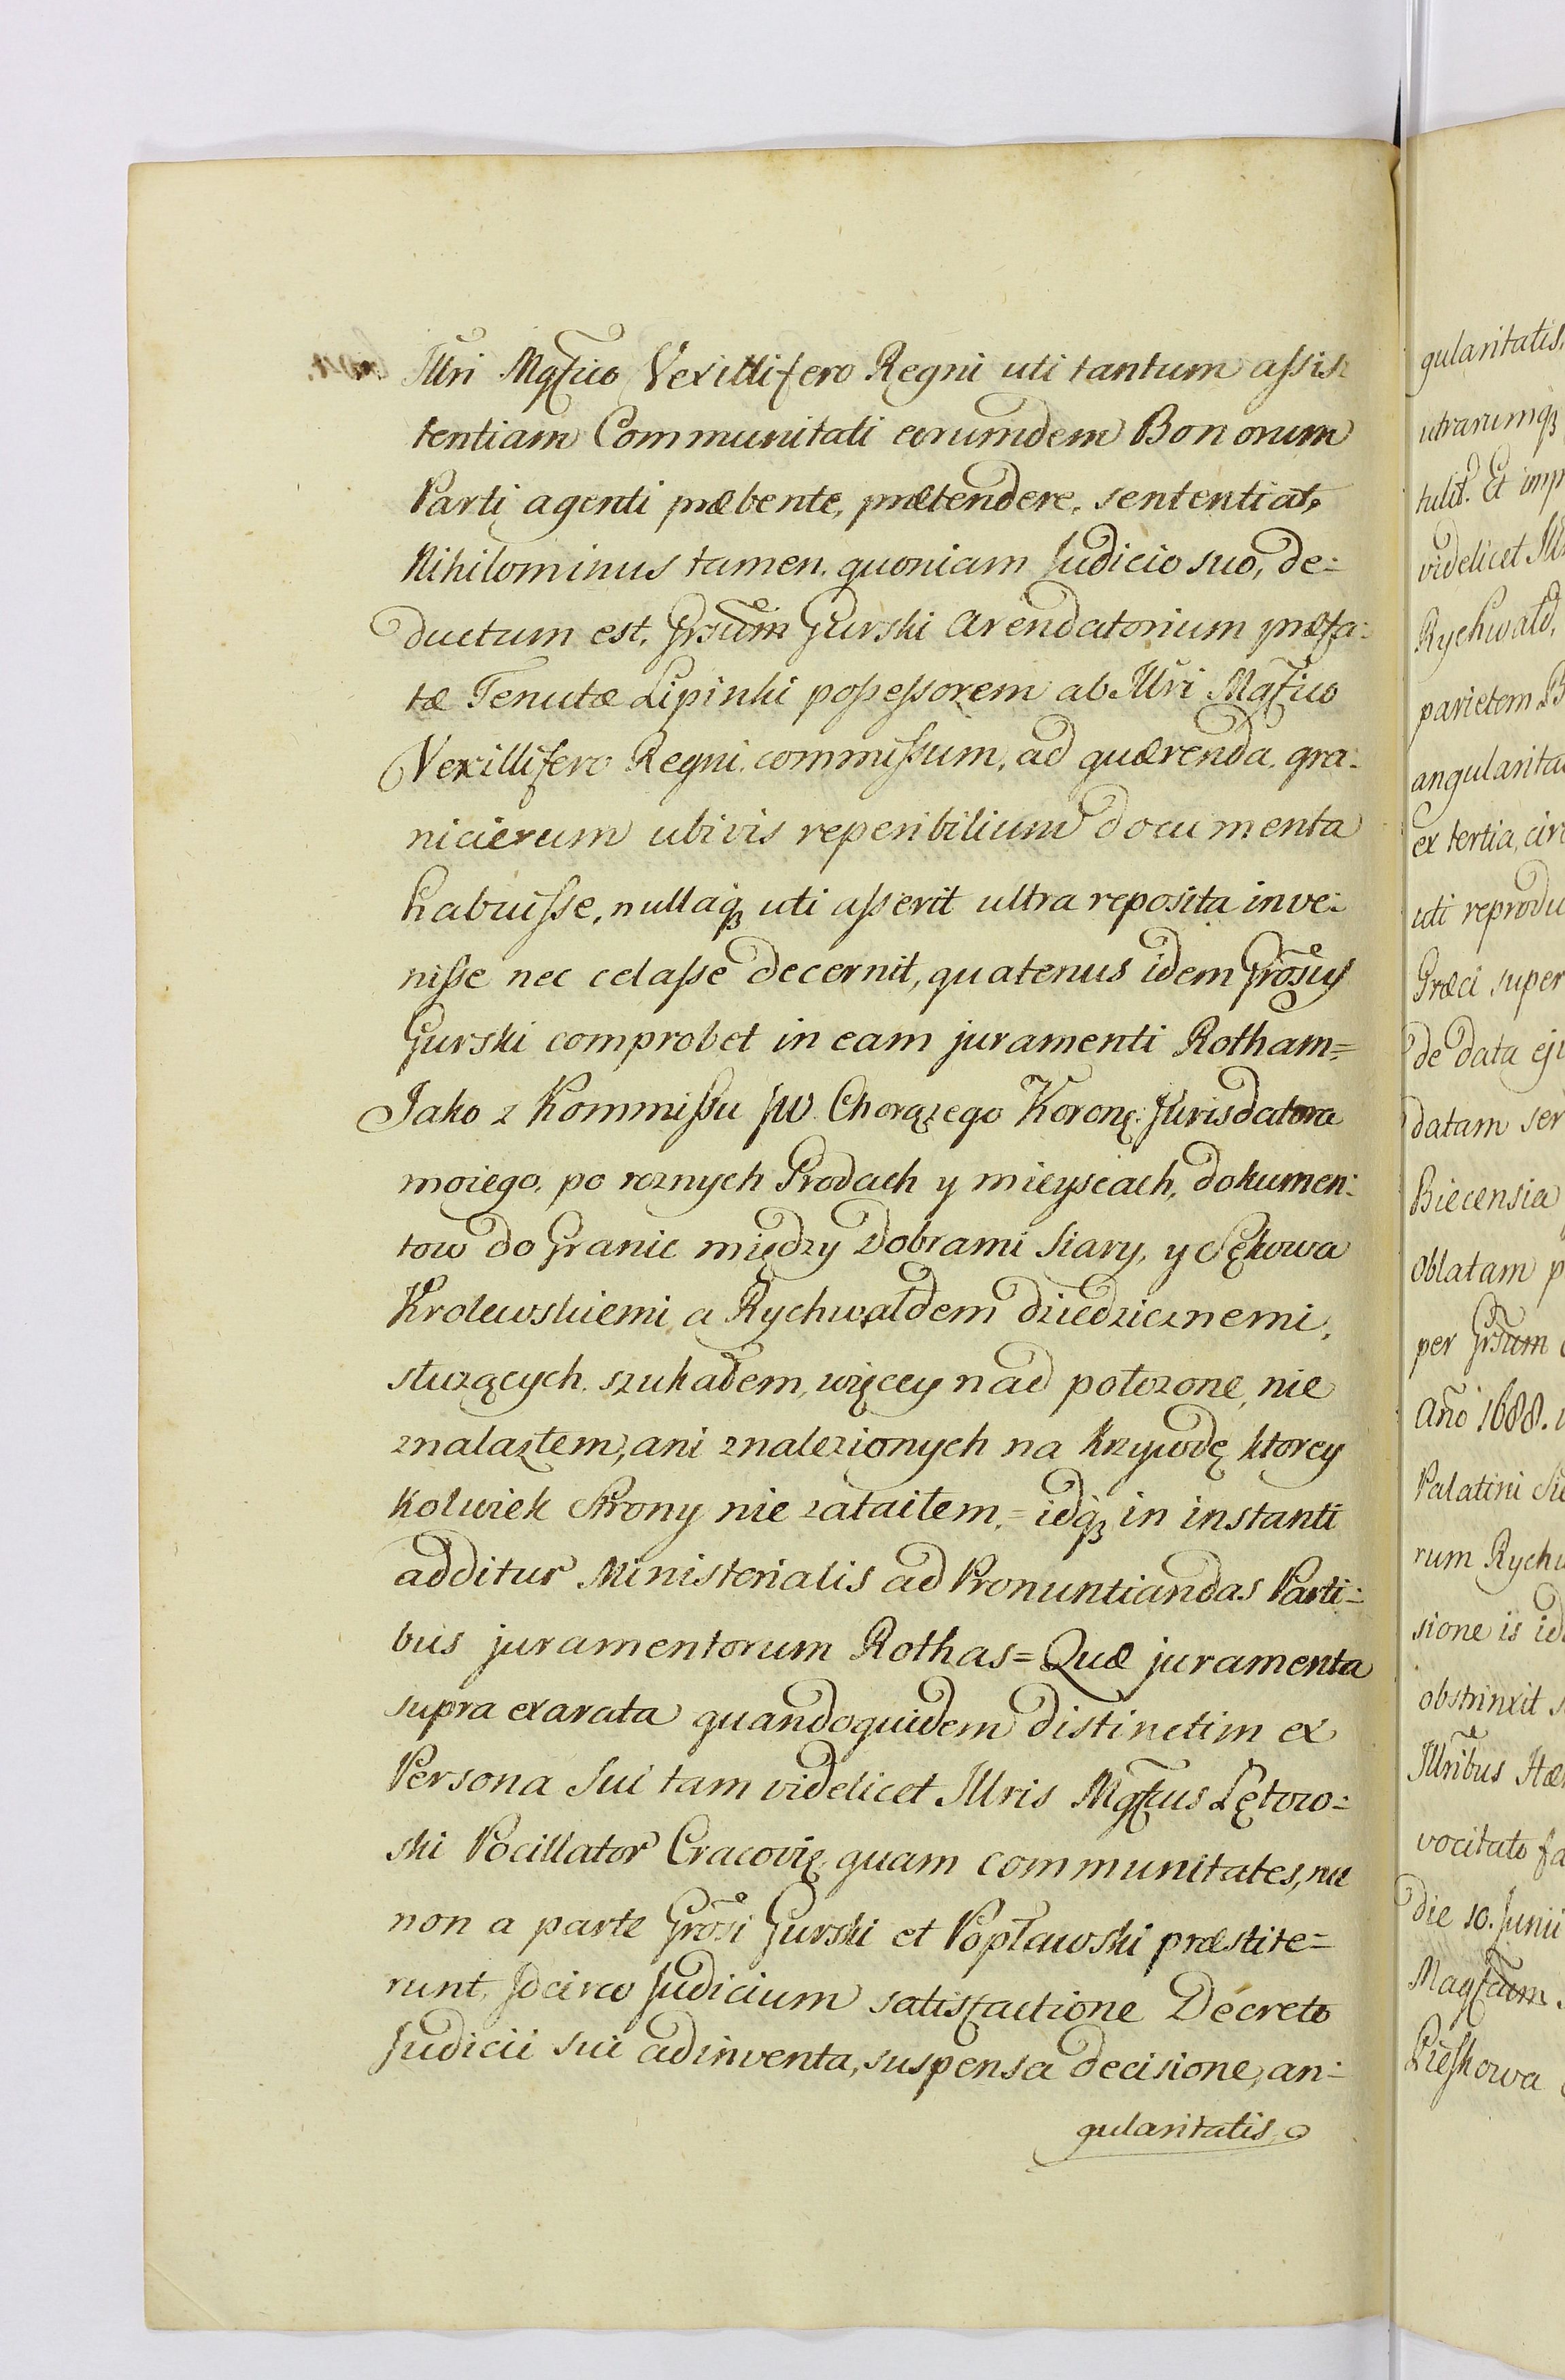 Illri Mgfico Vexillifero Regni uti tantum assis=
tentiam Communitati eorumdem Bonorum
Parti agenti præbente, prætendere, sententiat,
Nihilominus tamen, quoniam Judicio suo, de=
ductum est, Grsum Gurski arendatorium præfa=
tæ Tenutæ Lipinki possessorem ab Illri Mgfico
Vexillifero Regni commissum, ad quærenda, gra=
nicierum ubivis reperibilium documenta
habuisse, nullaq uti asserit ultra reposita inve=
nisse nec celasse decernit, quatenus idem Grosus
Gurski comprobet in eam juramenti Rotham=
Jako z Kommissu JW. Chorązego Koronę: Jurisdatora
moiego, po roznych Grodach y mieyscach, dokumen=
tow do Granic między Dobrami Siary, y Sękowa
Krolewskiemi, a Rychwałdem dziedzicznemi,
służących szukałem, więcey nad położone, nie
znalazłem, ani znalezionych na krzywdę ktorey
kolwiek Strony nie zataiłem.= idq in instanti
additur Ministerialis ad Pronuntiandas Parti=
bus juramentorum Rothas= Quæ juramenta
supra exarata quandoquidem distinctim ex
Persona sui tam videlicet Illris Mgfcus Łętow=
ski Pocillator Cracovię, quam communitates, nec
non a parte Grosi Gurski et Popławski præstite=
runt, Idcirco Judicium satisfactione Decreto
Judicii sui adinventa, suspensa decisione, an=
gularitatis,
gularitatis,
utrarumq
tulit. Et imp
videlicet Ill
Rychwałd,
parietem B
angularita
ex tertia, cir
uti reprodu
Græci super
de data ej
datam ser
Biecensia
oblatam p
per Grsum
Año 1688.
Palatini
rum Rychw
sione is id
obstrinxit s
Illribus Hæ
vocitato fa
die 10. Junii
Magfcum